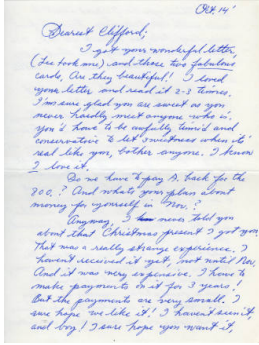 Oct 14'
Dearest Clifford,
I got your wonderful letter,
(Lee took one) and those two fabulous
cards. Are they beautiful! I loved
your letter and read it 2-3 times.
I'm sure glad you are sweet as you
never hardly meet anyone who is.
You'd have to be awfully timid and
conservative to let sweetness when its'
real like you, bother anyone. I know
I love it.
Do we have to pay A. back for the
800.? And what's your plan about
money for yourself in Nov.?
Anyway, I never told you
about that Christmas present I got you.
That was a really strange experience. I
haven't received it yet, not until Nov.
And it was very expensive. I have to
make payments on it for 3 years!
But the payments are very small. I
sure hope we like it! I haven't seen it,
and boy! I sure hope you want it,